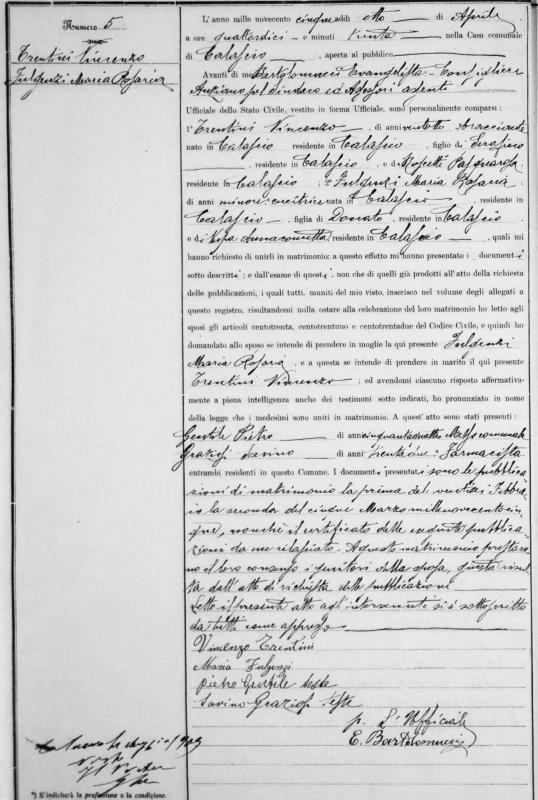 Numero 5
Trentini Vincenzo
Fulgenzi Maria Rosaria
L'anno mille novecento cinque addì otto di Aprile
a ore quattordici e minuti trenta nella Casa comunale
di Calascio, aperta al pubblico
Avanti di me Bartolomucci Evangelista Consigliere
Anziano pel Sindaco ed Assessori assenti
Ufficiale dello Stato Civile, vestito in forma Ufficiale, sono personalmente comparsi:
1° Trentini Vincenzo, di anni ventotto
nato in Calascio residente in Calascio, figlio di Serafino
residente in Calascio e di Pasquarosa
residente in Calascio; 2° Fulgenzi Maria Rosaria
di anni minore cucitrice nata in Calascio, residente in
Calascio, figlia di Donato, residente in Calascio
e di residente in Calascio, quali mi
hanno richiesto di unirli in matrimonio; a questo effetto mi hanno presentato i documenti
sotto descritti; e dall'esame di questi, non che di quelli già prodotti all'atto della richiesta
delle pubblicazioni, i quali tutti, muniti del mio visto, inserisco nel volume degli allegati a
questo registro, risultandomi nulla ostare alla celebrazione del loro matrimonio ho letto agli
sposi gli articoli centotrenta, centotrentuno e centotrentadue del Codice Civile, e quindi ho
domandato allo sposo se intende di prendere in moglie la quì presente Fulgenzi
Maria Rosaria, e a questa se intende di prendere in marito il quì presente
Trentini Vincenzo; ed avendomi ciascuno risposto affermativa-
mente a piena intelligenza anche dei testimoni sotto indicati, ho pronunziato in nome
della legge che i medesimi sono uniti in matrimonio. A quest' atto sono stati presenti:
Gentile Pietro di anni cinquantaquattro Messo comunale
Graziosi Savino di anni trentadue Farmacista
entrambi residenti in questo Comune. I documenti presentati sono le pubblica
zioni di matrimonio la prima del ventisei Febbra
io la seconda del cinque Marzo millenovecentocin
que, nonchè il certificato delle eseguite pubblica
zioni da me rilasciato. A questo matrimonio prestaro
no il loro consenso i genitori della sposa, questa risul
ta dall'atto di richiesta delle pubblicazione
Letto il presente atto agl'intervenuti si è sottoscritto
da tutti come appresso
Vincenzo Trentini
Maria Fulgenzi
Pietro Gentile teste
Savino Graziosi teste
p. L'Ufficiale
E. Bartolomucci
*) S'indicherà la professione o la condizione.